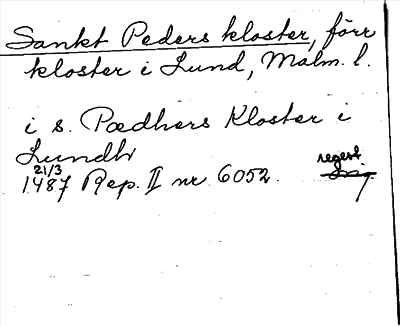 Sankt Peders kloster, förr
kloster i Lund, Malm. l.
i s. Pædhers Kloster i
Lundh
21/3
1487 Rep. II nr 6052. regest